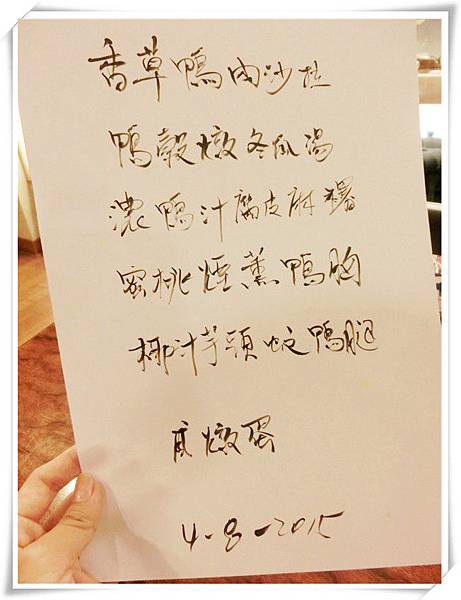 香草鴨肉沙拉
鴨殼燉冬瓜湯
濃鴨汁腐皮麻糬
蜜桃煙薰鴨胸
椰汁芋頭炆鴨腿
燉蛋
4-8-2015